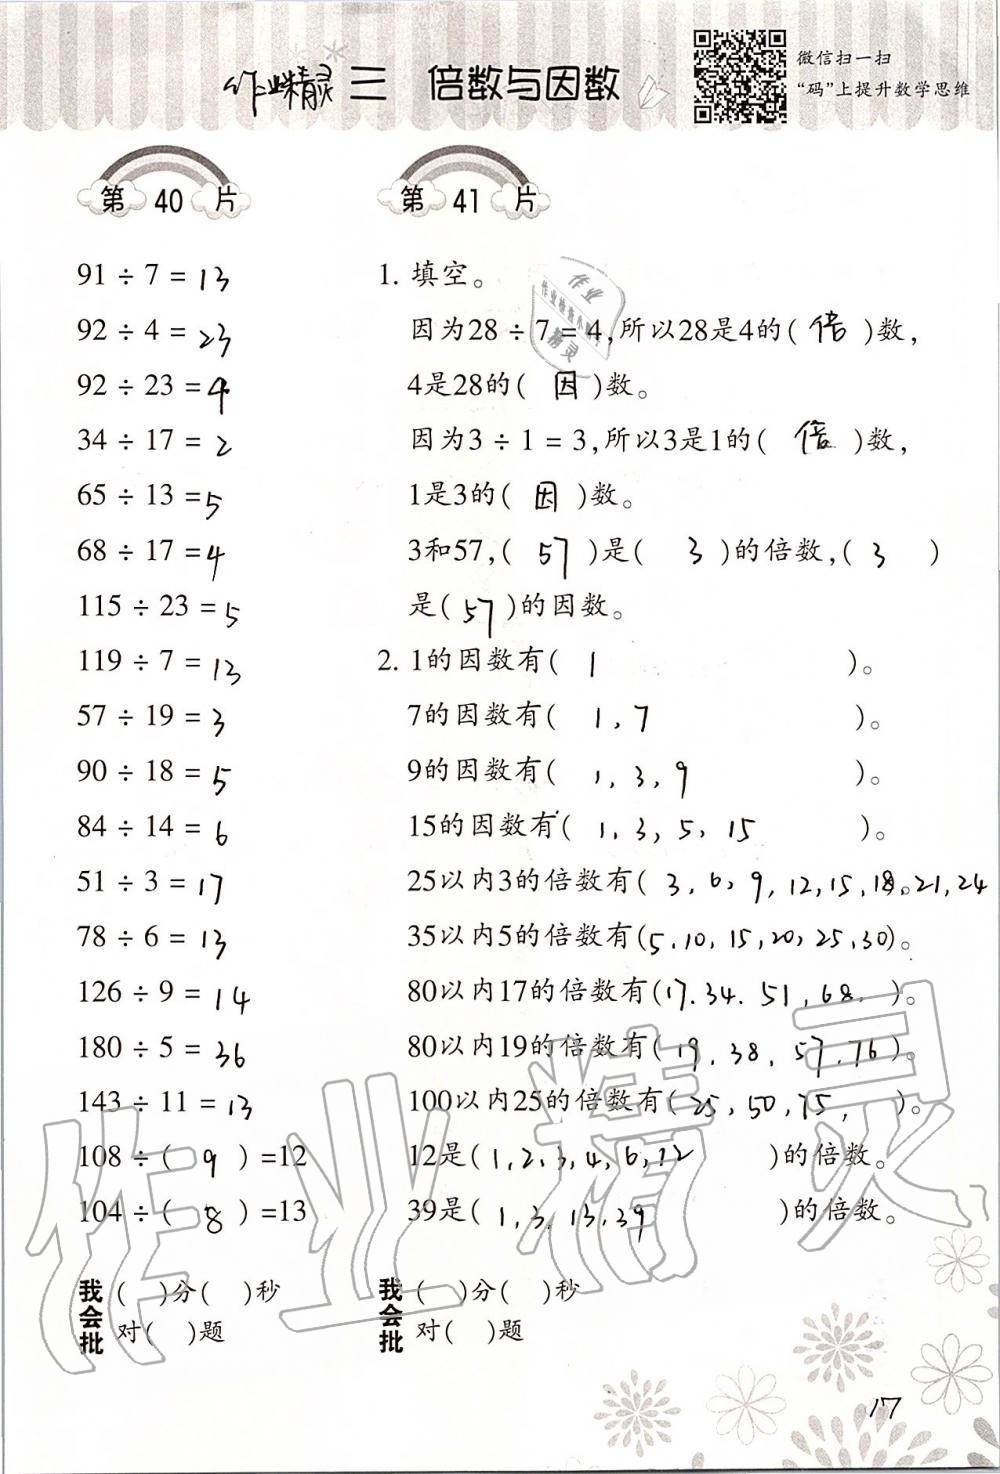 作业精灵 三 倍数与因数
微信扫一扫
“码”上提升数学思维
第 40 片
91 ÷ 7 = 13
92 ÷ 4 = 23
92 ÷ 23 = 4
34 ÷ 17 = 2
65 ÷ 13 = 5
68 ÷ 17 = 4
115 ÷ 23 = 5
119 ÷ 7 = 13
57 ÷ 19 = 3
90 ÷ 18 = 5
84 ÷ 14 = 6
51 ÷ 3 = 17
78 ÷ 6 = 13
126 ÷ 9 = 14
180 ÷ 5 = 36
143 ÷ 11 = 13
108 ÷ ( 9 ) =12
104 ÷ ( 8 ) =13
我会批 ( )分( )秒
对( )题
第 41 片
1. 填空。
因为28 ÷ 7 = 4,所以28是4的( 倍 )数,
4是28的( 因 )数。
因为3 ÷ 1 = 3,所以3是1的( 倍 )数,
1是3的( 因 )数。
3和57,( 57 )是( 3 )的倍数,( 3 )
是( 57 )的因数。
2. 1的因数有( 1 )。
7的因数有( 1, 7 )。
9的因数有( 1, 3, 9 )。
15的因数有( 1, 3, 5, 15 )。
25以内3的倍数有( 3, 6, 9, 12, 15, 18。21, 24
35以内5的倍数有(5, 10, 15, 20, 25, 30)。
80以内17的倍数有(17. 34. 51, 68, )。
80以内19的倍数有( 19, 38, 57, 76 )。
100以内25的倍数有( 25, 50, 75, )。
12是( 1, 2, 3, 4, 6, 12 )的倍数。
39是( 1, 3, 13, 39 )的倍数。
我会批 ( )分( )秒
对( )题
17
作业
精灵
作业精灵